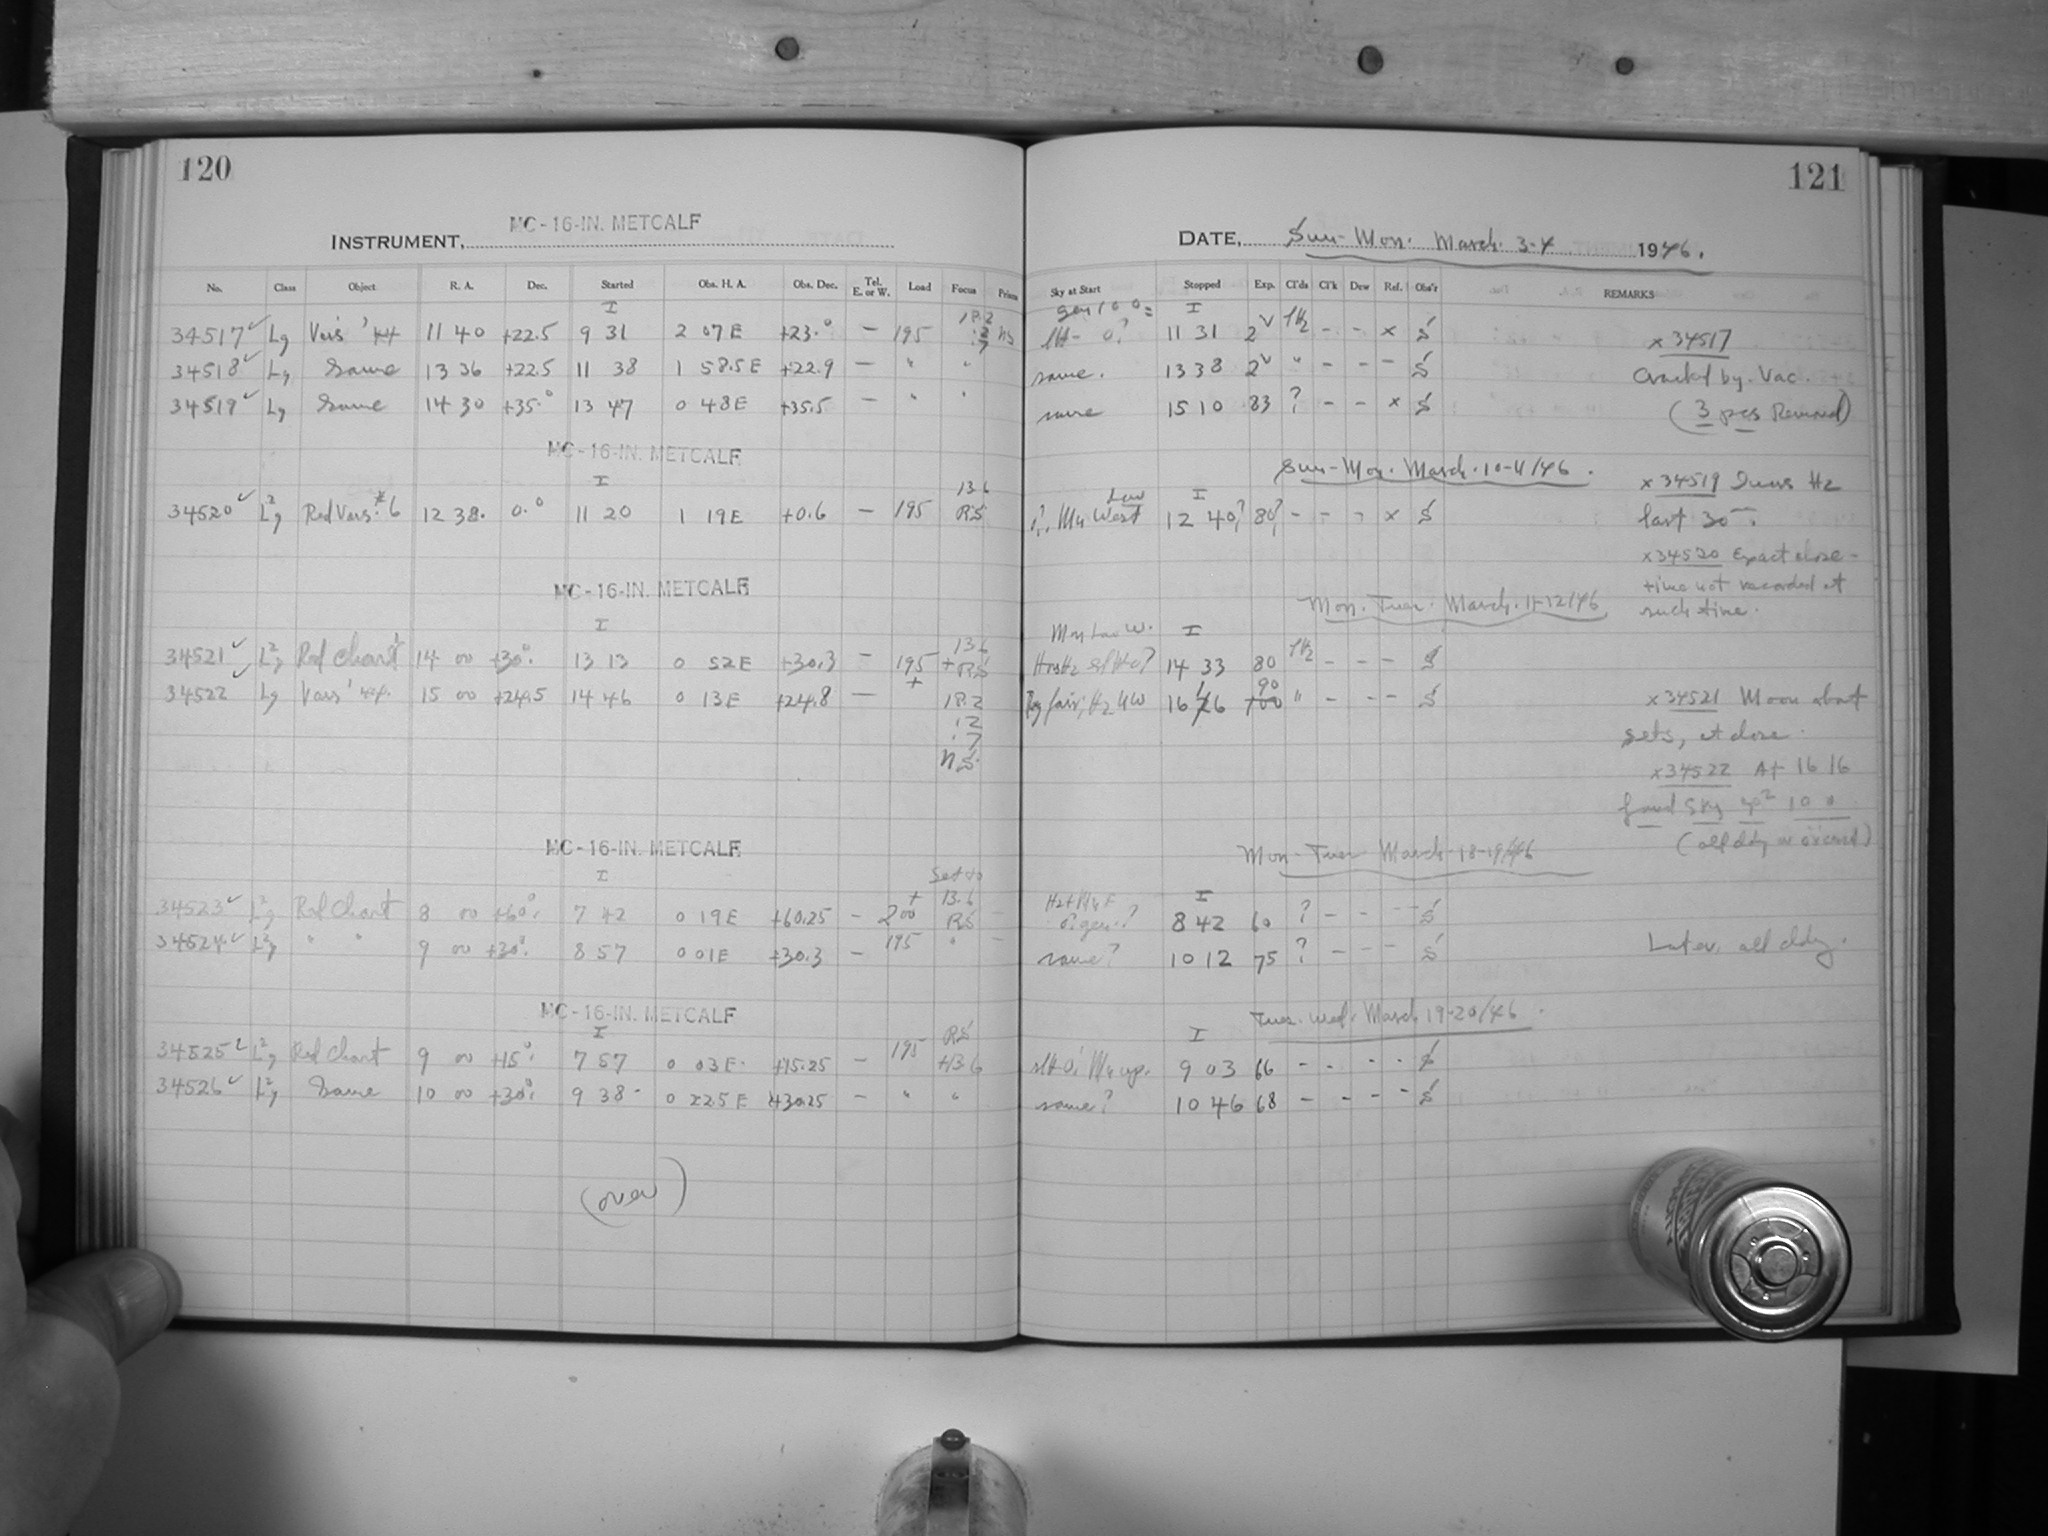 120
INSTRUMENT, MC-16-IN. METCALF
No. Class Object R. A. Dec. Started Obs. H. A. Obs. Dec. Tel. E. or W. Load Focus Prism
I
34517 ✓ Lg Vars' 44 11 40 +22.5 9 31 2 07 E +23.° — 195 18.2 .2 .7 NS
34518 ✓ Lg Same 13 36 +22.5 11 38 1 58.5 E +22.9 — " "
34519 ✓ Lg Same 14 30 +35.° 13 47 0 48 E +35.5 — " "
MC-16-IN. METCALF
I
34520 ✓ L²g Red Vars. *6 12 38. 0.° 11 20 1 19 E +0.6 — 195 13.6 RS
MC-16-IN. METCALF
I
34521 ✓ L²g Red Chart 14 00 +30°. 13 13 0 52 E +30.3 — 195 + 13.6 + RS
34522 ✓ Lg Vars' 44. 15 00 +24.5 14 46 0 13 E +24.8 — 18.2
.2
.7
NS.
MC-16-IN. METCALF
I
34523 ✓ L²g Red Chart 8 00 +60°. 7 42 0 19 E +60.25 — 200 + Set to 13.6 RS —
34524 ✓ L²g " " 9 00 +30°. 8 57 0 01 E +30.3 — 195 " —
MC-16-IN. METCALF
I
34525 ✓ L²g Red Chart 9 00 +15°. 7 57 0 03 E. +15.25 — 195 RS +13.6
34526 ✓ L²g Same 10 00 +30°. 9 38 0 22.5 E +30.25 — " "
(over)
121
DATE, Sun-Mon. March 3-4 1946.
Sky at Start Stopped Exp. Cl'ds Cl'k Dew Ref. Obs'r REMARKS
I
11 31 2 Hz — — x S x 34517
same. 13 38 2 " — — — S Cracked by Vac.
same 15 10 83 ? — — x S (3 pcs Removed)
Sun-Mon. March 10-11/46.
I
Mn Low West 12 40? 80? — — — x S x 34519 Hz
last 30
x 34520 Exact close-
time not recorded at
such time.
Mon. Tues. March 11-12/46
Mn Low W. I
14 33 80 Hz — — — S
fair, Hz UW 16 16 90 " — — — S x 34521 Moon about
sets, at close.
x 34522 At 16 16
found Sky 10 0
Mon-Tues March 18-19/46
I
8 42 60 ? — — — S
same? 10 12 75 ? — — — S Later, all cldy.
Tues. Wed. March 19-20/46.
I
Mn up. 9 03 66 — — — — S
same? 10 46 68 — — — — S